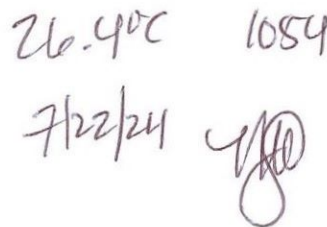 26.4°C 1054
7/22/24